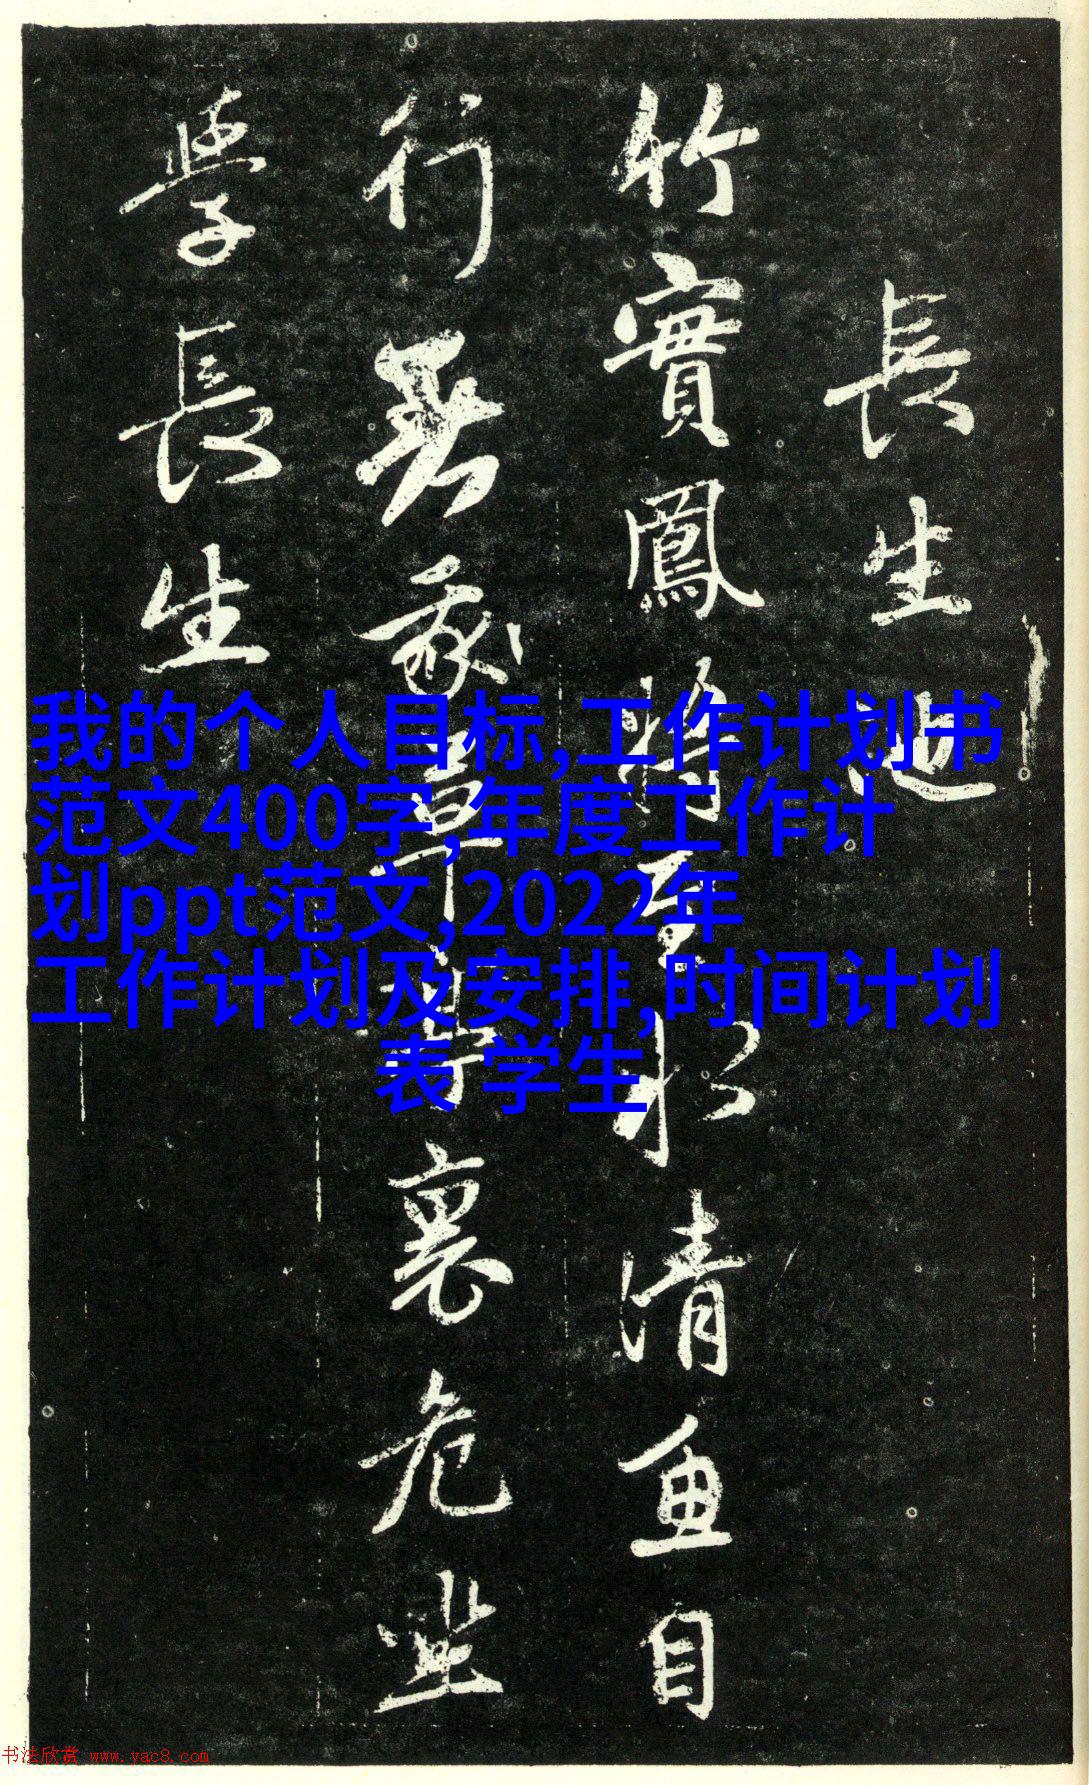 長生池
竹實鳳將至水清魚自
行裏危坐
學長生
我的个人目标,工作计划书
范文400字,年度工作计
划ppt范文,2022年
工作计划及安排,时间计划
表 学生
书法欣赏 www.yac8.com